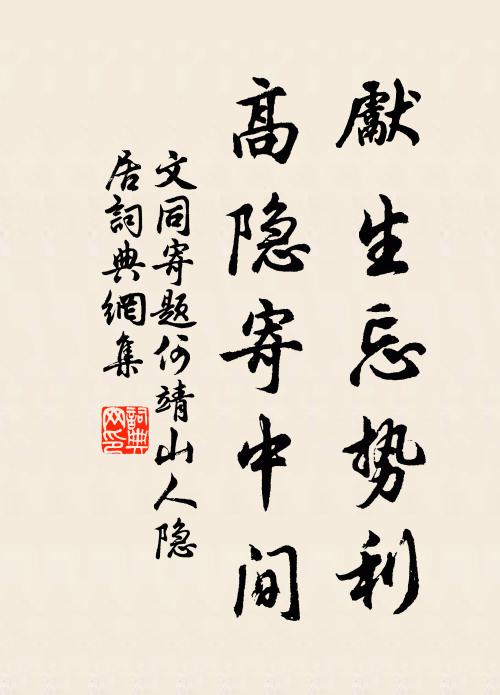 獻生忘势利
高隐寄中间
文同寄题何靖山人隐
居詞典網集
詞典网印